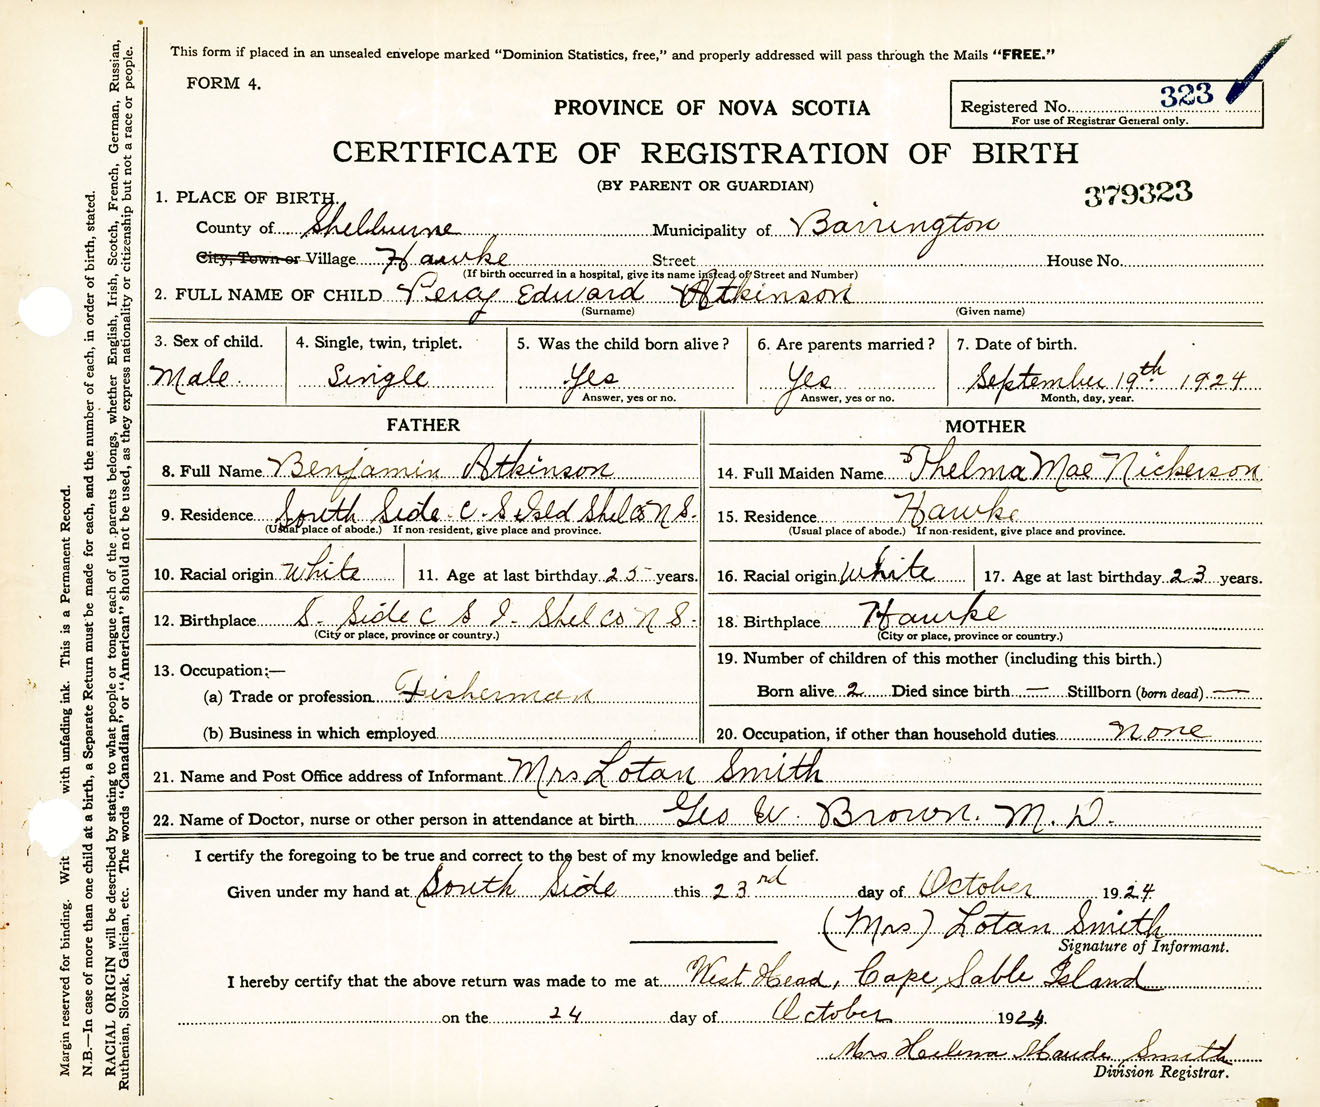 This form if placed in an unsealed envelope marked "Dominion Statistics, free," and properly addressed will pass through the Mails "FREE."
FORM 4.
PROVINCE OF NOVA SCOTIA
Registered No. 323
For use of Registrar General only.
CERTIFICATE OF REGISTRATION OF BIRTH
(BY PARENT OR GUARDIAN)
379323
1. PLACE OF BIRTH.
County of Shelburne Municipality of Barrington
City, Town or Village Hawke Street House No.
(If birth occurred in a hospital, give its name instead of Street and Number)
2. FULL NAME OF CHILD Percy Edward Atkinson
(Surname) (Given name)
3. Sex of child. 4. Single, twin, triplet. 5. Was the child born alive? 6. Are parents married? 7. Date of birth.
Male Single Yes Yes September 19th 1924
Answer, yes or no. Answer, yes or no. Month, day, year.
FATHER MOTHER
8. Full Name Benjamin Atkinson 14. Full Maiden Name Thelma Mae Nickerson
9. Residence South Side C. S Isld Shel Co N S. 15. Residence Hawke
(Usual place of abode.) If non-resident, give place and province. (Usual place of abode.) If non-resident, give place and province.
10. Racial origin White 11. Age at last birthday 25 years. 16. Racial origin White 17. Age at last birthday 23 years.
12. Birthplace S. Side C S I. Shel Co N S. 18. Birthplace Hawke
(City or place, province or country.) (City or place, province or country.)
13. Occupation:— 19. Number of children of this mother (including this birth.)
(a) Trade or profession Fisherman Born alive 2 Died since birth — Stillborn (born dead) —
(b) Business in which employed 20. Occupation, if other than household duties None
21. Name and Post Office address of Informant Mrs Lotan Smith
22. Name of Doctor, nurse or other person in attendance at birth Geo W. Brown. M. D.
I certify the foregoing to be true and correct to the best of my knowledge and belief.
Given under my hand at South Side this 23rd day of October 1924
(Mrs) Lotan Smith
Signature of Informant.
I hereby certify that the above return was made to me at West Head, Cape Sable Island
on the 24 day of October 1924.
Mrs Helena Maude Smith
Division Registrar.
Margin reserved for binding. Writ with unfading ink. This is a Permanent Record.
N.B.—In case of more than one child at a birth, a Separate Return must be made for each, and the number of each, in order of birth, stated.
RACIAL ORIGIN will be described by stating to what people or tongue each of the parents belongs, whether English, Irish, Scotch, French, German, Russian,
Ruthenian, Slovak, Galician, etc. The words "Canadian" or "American" should not be used, as they express nationality or citizenship but not a race or people.